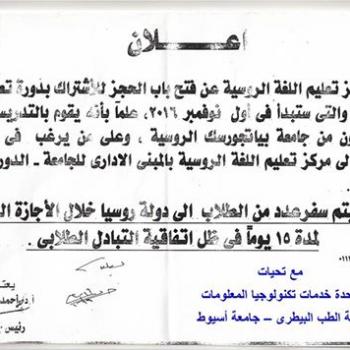 اعـــلان
ز تعليم اللغة الروسية عن فتح باب الحجز للأشتراك بدورة تع
والتى ستبدأ فى أول نوفمبر ٢٠١٦، علماً بأنه يقوم بالتدريس
ون من جامعة بياتجورسك الروسية ، وعلى من يرغب فى
لى مركز تعليم اللغة الروسية بالمبنى الادارى للجامعة - الدور
يتم سفر عدد من الطلاب الى دولة روسيا خلال الأجازة ال
لمدة ١٥ يوماً فى ظل اتفاقية التبادل الطلابى .
٠١١١
مع تحيات
حدة خدمات تكنولوجيا المعلومات
ة الطب البيطرى – جامعة أسيوط
يعتـ
أ.د/ احمد
رئيس